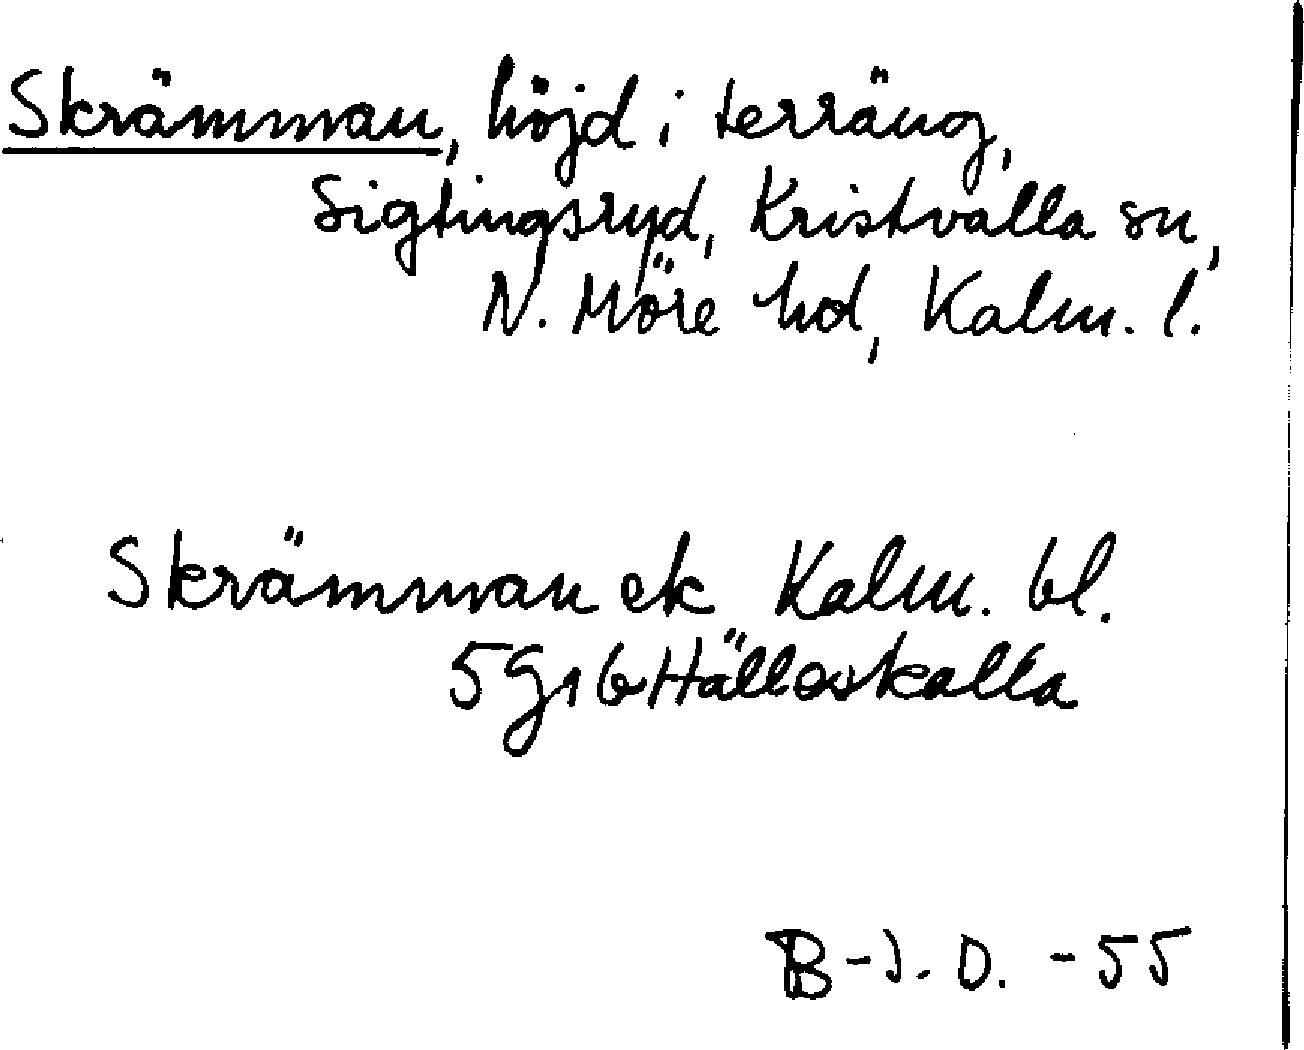 Skrämman, höjd i terräng,
Sigtingsryd, Kristvalla sn,
N. Möre hd, Kalm. l.
Skrämman ek Kalm. bl.
5 G 1 b Hälleskalla
B-J. O. -55